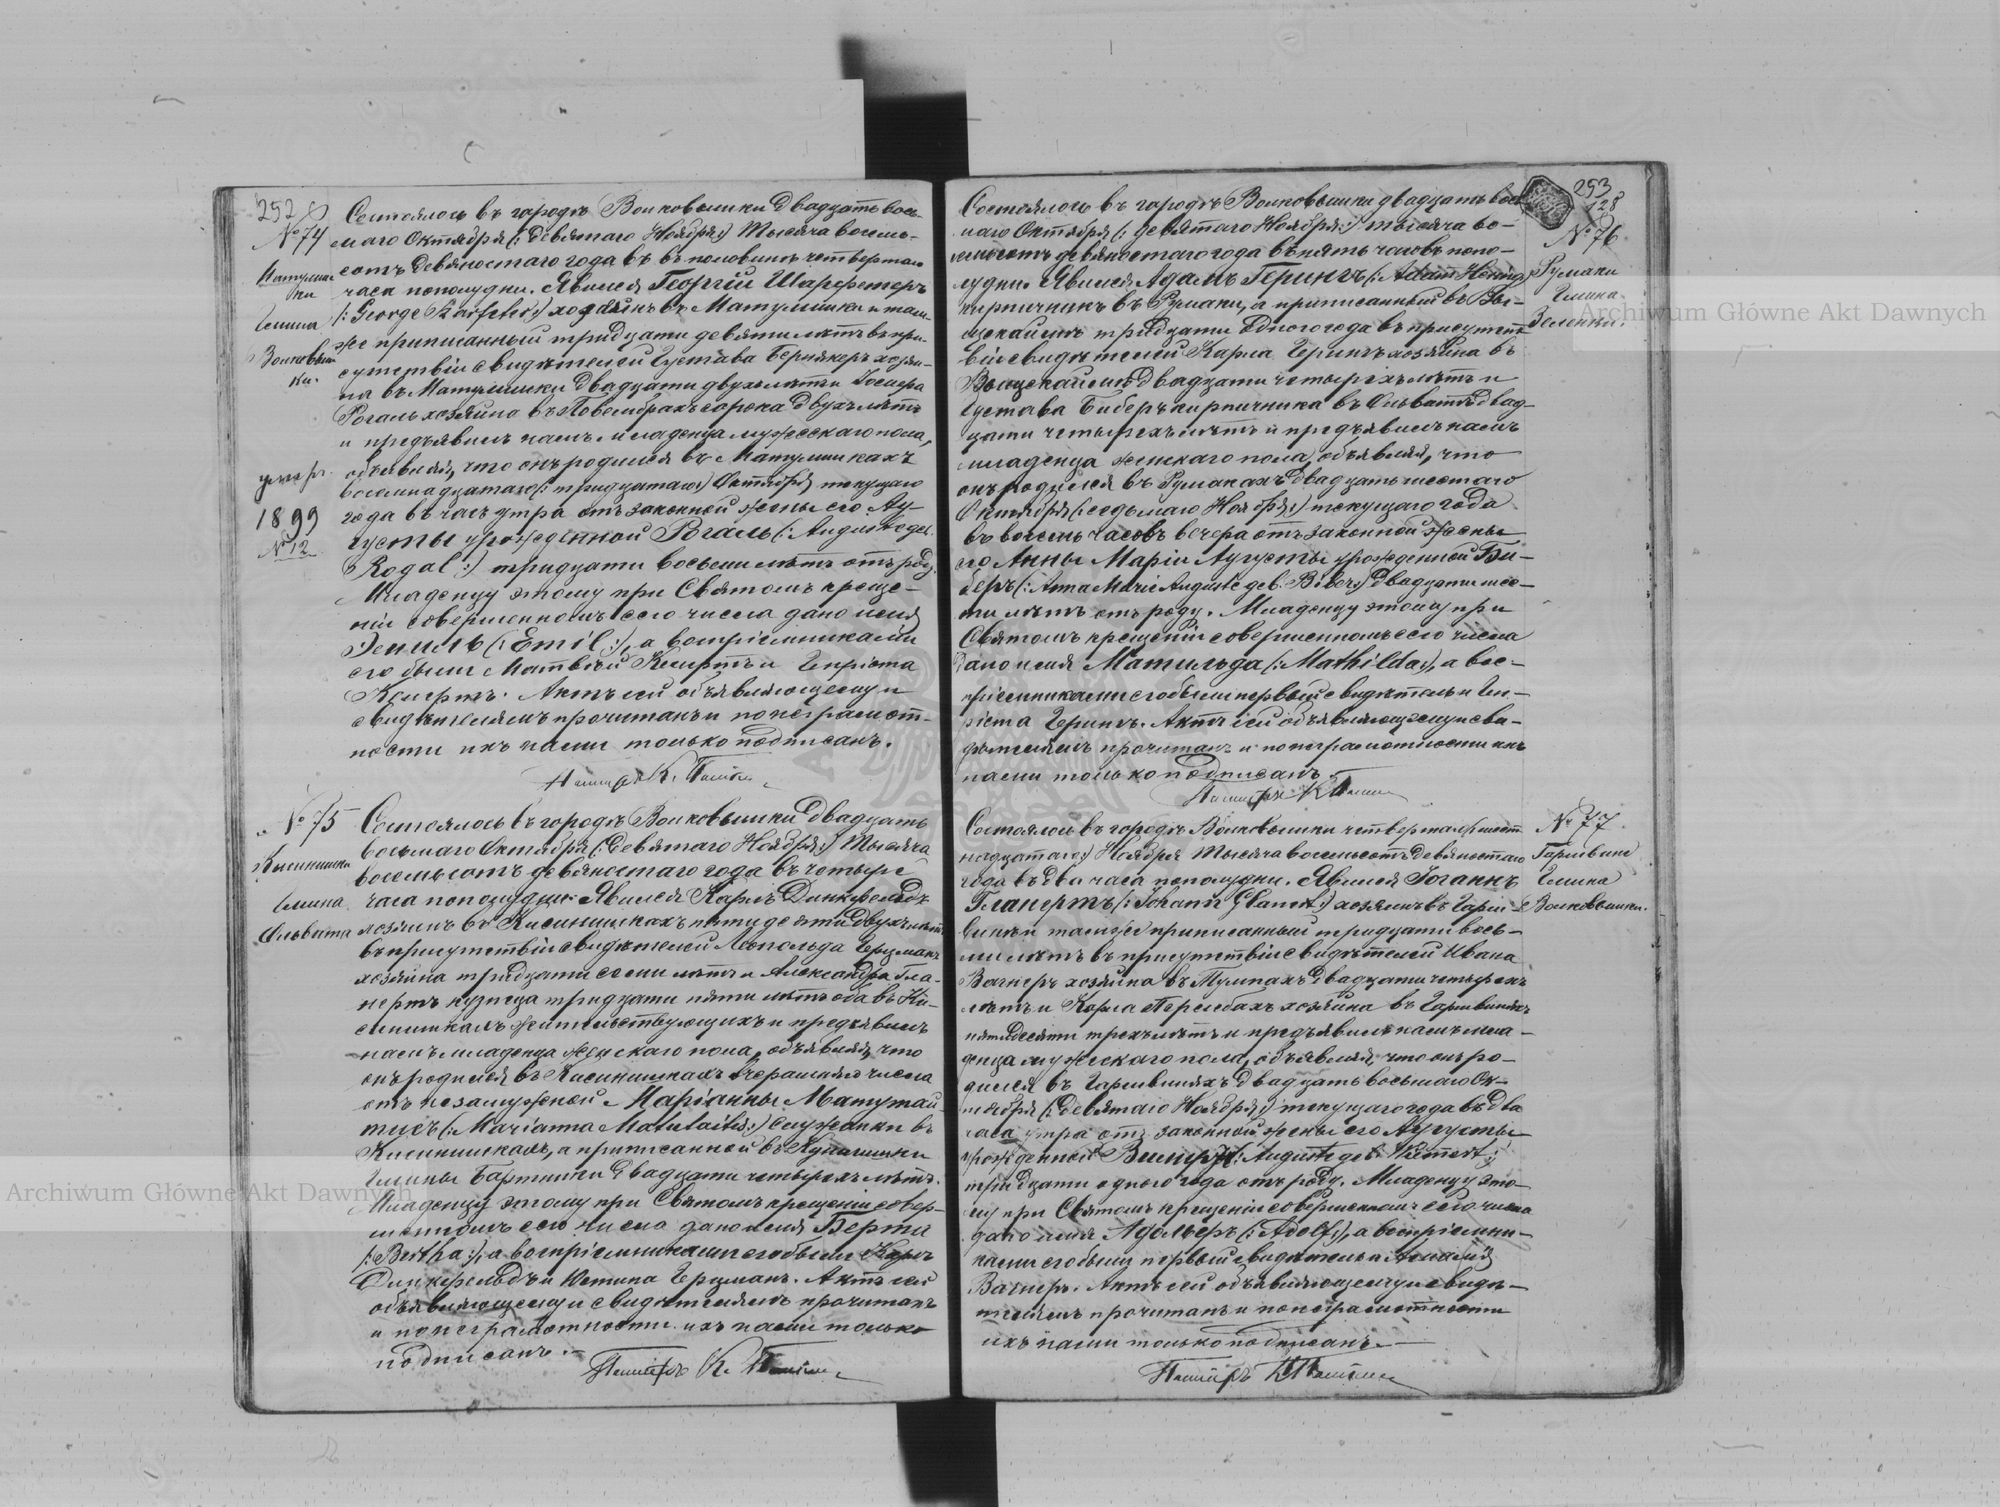 252
№ 74
Матулиш
ки
Гмина
Волковыш
ки.
умер
1899
№ 12
Состоялось въ городѣ Волковышки двадцать вось-
маго Октября (: девятаго Ноября:) тысяча восемь-
сотъ девяностаго года въ половинѣ четвертаго
часа пополудни. Явился Георгій Шарфетеръ
(: George :) хозяинъ въ Матулишки и там-
же приписанный тридцати девяти лѣтъ въ при-
сутствіи свидѣтелей Густава Бернекеръ хозяи-
на въ Матулишки двадцати двухъ лѣтъ и Іосифа
Рогаль хозяина въ сорока двухъ лѣтъ
и предъявилъ намъ младенца мужескаго пола,
объявляя, что онъ родился въ Матулишкахъ
восемнадцатаго (: тридцатаго:) Октября текущаго
года въ часъ утра отъ законной жены его Ау-
густы урожденной Рогаль (: Auguste geb.
Rogal :) тридцати восьми лѣтъ отъ роду.
Младенцу этому при Святомъ креще-
ніи совершенномъ сего числа дано имя
Эмиль (: Emil :), а воспріемниками
его были Матвѣй Кемертъ и Генріэта
Кемертъ. Актъ сей объявляющему и
свидѣтелямъ прочитанъ и по неграмот-
ности ихъ нами только подписанъ.
Пасторъ К.
№ 75
Кисинишки
Гмина
Ольвита
Состоялось въ городѣ Волковышки двадцать
восьмаго Октября (: девятаго Ноября:) тысяча
восемьсотъ девяностаго года въ четыре
часа пополудни. Явился Карлъ Динкфельдъ
хозяинъ въ Кисинишкахъ пятидесяти двухъ лѣтъ
въ присутствіи свидѣтелей Леопольда Герцманъ
хозяина тридцати семи лѣтъ и Александра Гла-
нертъ кузнеца тридцати пяти лѣтъ оба въ Ки-
синишкахъ жительствующихъ и предъявилъ
намъ младенца женскаго пола, объявляя, что
онъ родился въ Кисинишкахъ вчерашняго числа
отъ незамужной Маріанны Матутай-
тисъ (: Marianna Matulaitis :) служанки въ
Кисинишкахъ, а приписанной въ
Гмины Бартники двадцати четырехъ лѣтъ.
Младенцу этому при Святомъ крещеніи совер-
шенномъ сего числа дано имя Берта
(: Bertha :), а воспріемниками его были Карлъ
Динкфельдъ и Герцманъ. Актъ сей
объявляющему и свидѣтелямъ прочитанъ
и по неграмотности ихъ нами только
подписанъ.
Пасторъ К.
253
128
№ 76
Румаки
Гмина
Зеленка.
Состоялось въ городѣ Волковышки двадцать вось-
маго Октября (: девятаго Ноября:) тысяча во-
семьсотъ девяностаго года въ пять часовъ попо-
лудни. Явился Адамъ Герингъ (: Adam Hering :)
кирпичникъ въ Румаки, а приписанный въ
тридцати одного года въ присутст-
віи свидѣтелей Карла Герингъ хозяина въ
двадцати четырехъ лѣтъ и
Густава Биберъ кирпичника въ Ольвитѣ двад-
цати четырехъ лѣтъ и предъявилъ намъ
младенца женскаго пола, объявляя, что
онъ родился въ Румакахъ двадцать шестаго
Октября (: седьмаго Ноября:) текущаго года
въ восемь часовъ вечера отъ законной жены
его Анны Маріи Аугусты урожденной Би-
беръ (: Anna Marie Auguste geb. Biber :) двадцати шес-
ти лѣтъ отъ роду. Младенцу этому при
Святомъ крещеніи совершенномъ сего числа
дано имя Матильда (: Mathilda :), а вос-
пріемниками его были первый свидѣтель и Ген-
ріета Герингъ. Актъ сей объявляющему и сви-
дѣтелямъ прочитанъ и по неграмотности ихъ
нами только подписанъ.
Пасторъ К.
№ 77.
Гарливине
Гмина
Волковышки.
Состоялось въ городѣ Волковышки четвертаго (: шест-
надцатаго:) Ноября тысяча восемьсотъ девяностаго
года въ два часа пополудни. Явился Іоганнъ
Гланертъ (: Johann Glanert :) хозяинъ въ Гарли-
винѣ и тамже приписанный тридцати вось-
ми лѣтъ въ присутствіи свидѣтелей Ивана
Вагнеръ хозяина въ двадцати четырехъ
лѣтъ и Карла хозяина въ Гарливиняхъ
пятидесяти трехъ лѣтъ и предъявилъ намъ мла-
денца мужескаго пола, объявляя, что онъ ро-
дился въ Гарливиняхъ двадцать восьмаго Ок-
тября (: девятаго Ноября:) текущаго года въ два
часа утра отъ законной жены его Аугусты
урожденной (: Auguste geb. :)
тридцати одного года отъ роду. Младенцу это-
му при Святомъ крещеніи совершенномъ сего числа
дано имя Адольфъ (: Adolf :), а воспріемни-
ками его были первый свидѣтель и Амалія
Вагнеръ. Актъ сей объявляющему и свидѣ-
телямъ прочитанъ и по неграмотности
ихъ нами только подписанъ.
Пасторъ К.
Archiwum Główne Akt Dawnych
Archiwum Główne Akt Dawnych